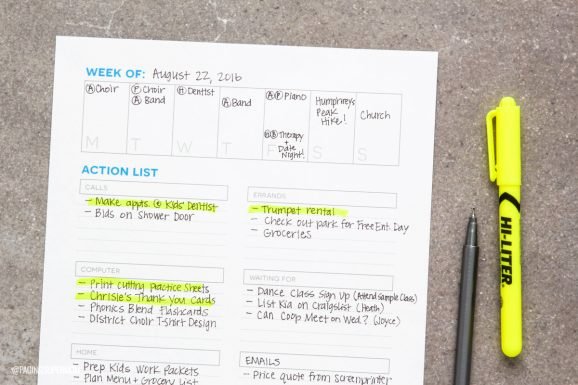 WEEK OF: August 22, 2016
Ⓐ Choir
Ⓟ Choir
Ⓐ Band
Ⓗ Dentist
Ⓐ Band
ⒶⓅ Piano
Therapy
+
Date
Night!
Humphrey's
Peak
Hike!
Church
M T W T F S S
ACTION LIST
CALLS
- Make appts. @ Kids' Dentist
- Bids on Shower Door
ERRANDS
- Trumpet rental
- Check out park for Free Ent. Day
- Groceries
COMPUTER
- Print Cutting Practice Sheets
- Chrisie's Thank You Cards
- Phonics Blend Flashcards
- District Choir T-Shirt Design
WAITING FOR
- Dance Class Sign Up (Attend Sample Class)
- List Kia on Craigslist (Heath)
- Can Coop Meet on Wed.? (Joyce)
HOME
- Prep Kids Work Packets
- Plan Menu + Grocery List
EMAILS
- Price quote from Screenprinter
HI-LITER